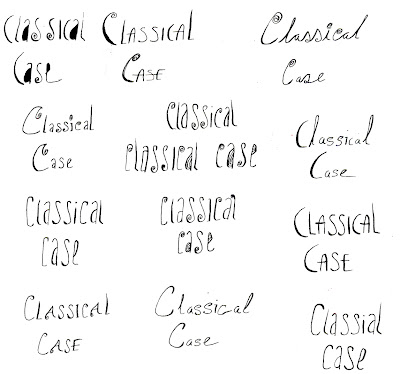 Classical
Case
CLASSICAL
CASE
Classical
Case
Classical
Case
Classical
classical case
Classical
Case
Classical
case
Classical
case
CLASSICAL
CASE
CLASSICAL
CASE
Classical
Case
Classial
case